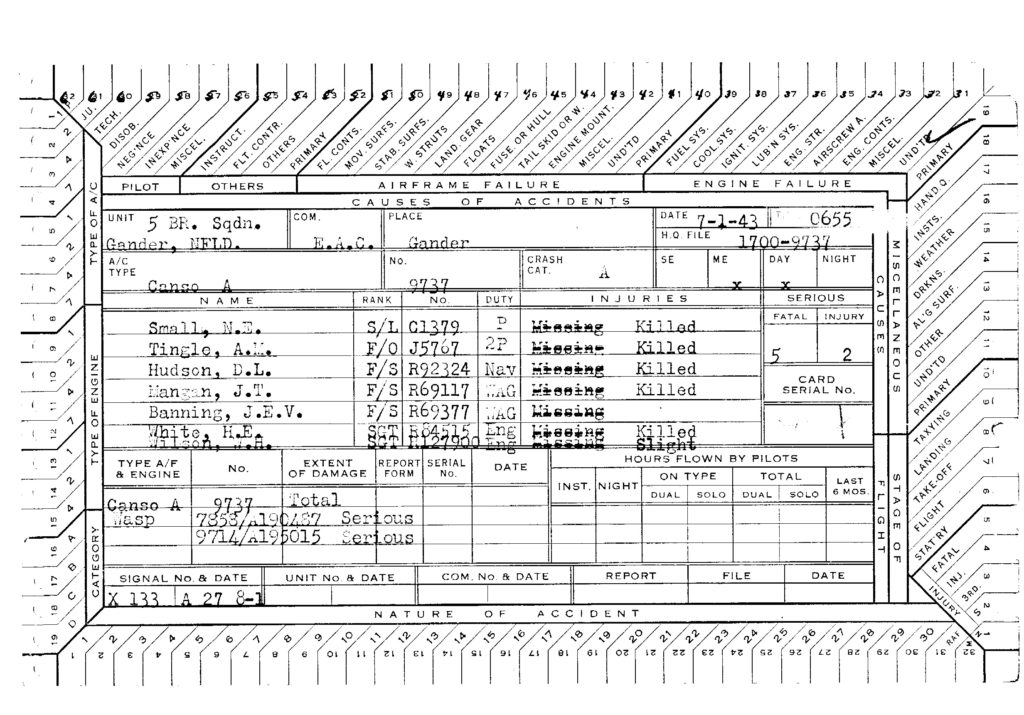 62 61 60 59 58 57 56 55 54 53 52 51 50 49 48 47 46 45 44 43 42 41 40 39 38 37 36 35 34 33 32 31
JU. TECH. DISOB. NEG'NCE INEXP'NCE MISCEL. INSTRUCT. FLT. CONTR. OTHERS PRIMARY FL. CONTS. MOV. SURFS. STAB. SURFS. W. STRUTS LAND. GEAR FLOATS FUSE. OR HULL TAIL SKID OR W. ENGINE MOUNT. MISCEL. UND'TD PRIMARY FUEL SYS. COOL SYS. IGNIT. SYS. LUB'N SYS. ENG. STR. AIRSCREW A. ENG. CONTS. MISCEL. UND'TD
PILOT OTHERS AIRFRAME FAILURE ENGINE FAILURE
CAUSES OF ACCIDENTS
UNIT 5 BR. Sqdn. COM. PLACE DATE 7-1-43 T. 0655
Gander, NFLD. E.A.C. Gander H.Q. FILE 1700-9737
A/C TYPE No. CRASH CAT. A SE ME DAY NIGHT
Canso A 9737 x x
NAME RANK No. DUTY INJURIES SERIOUS
FATAL INJURY
Small, N.E. S/L C1379 P Missing Killed
Tingle, A.M. F/O J5767 2P Missing Killed
5 2
Hudson, D.L. F/S R92324 Nav Missing Killed
CARD SERIAL No.
Mangan, J.T. F/S R69117 WAG Missing Killed
Banning, J.E.V. F/S R69377 WAG Missing
White, H.E. SGT R84515 Eng Missing Killed
Wilson, J.A. SGT R127900 Eng missing Slight
TYPE A/F & ENGINE No. EXTENT OF DAMAGE REPORT FORM SERIAL No. DATE HOURS FLOWN BY PILOTS
INST. NIGHT ON TYPE TOTAL LAST 6 MOS.
DUAL SOLO DUAL SOLO
Canso A 9737 Total
Wasp 7858/A190487 Serious
9714/A195015 Serious
SIGNAL No. & DATE UNIT No & DATE COM. No. & DATE REPORT FILE DATE
X 133 A 27 8-1
NATURE OF ACCIDENT
1 2 3 4 5 6 7 8 9 10 11 12 13 14 15 16 17 18 19 20 21 22 23 24 25 26 27 28 29 30 RAF
1 2 3 4 5 6 7 8 9 10 11 12 13 14 15 16 17 18 19 20 21 22 23 24 25 26 27 28 29 30 31 32
TYPE OF A/C
TYPE OF ENGINE
CATEGORY
MISCELLANEOUS CAUSES
STAGE OF FLIGHT
PRIMARY
HAND.Q.
INSTS.
WEATHER
DRKNS.
AL'G SURF.
OTHER
UND'TD
PRIMARY
TAXYING
LANDING
TAKE-OFF
FLIGHT
STAT'RY
FATAL
INJ.
3RD.
INJURY
19 18 17 16 15 14 13 12 11 10 9 8 7 6 5 4 3 2 1